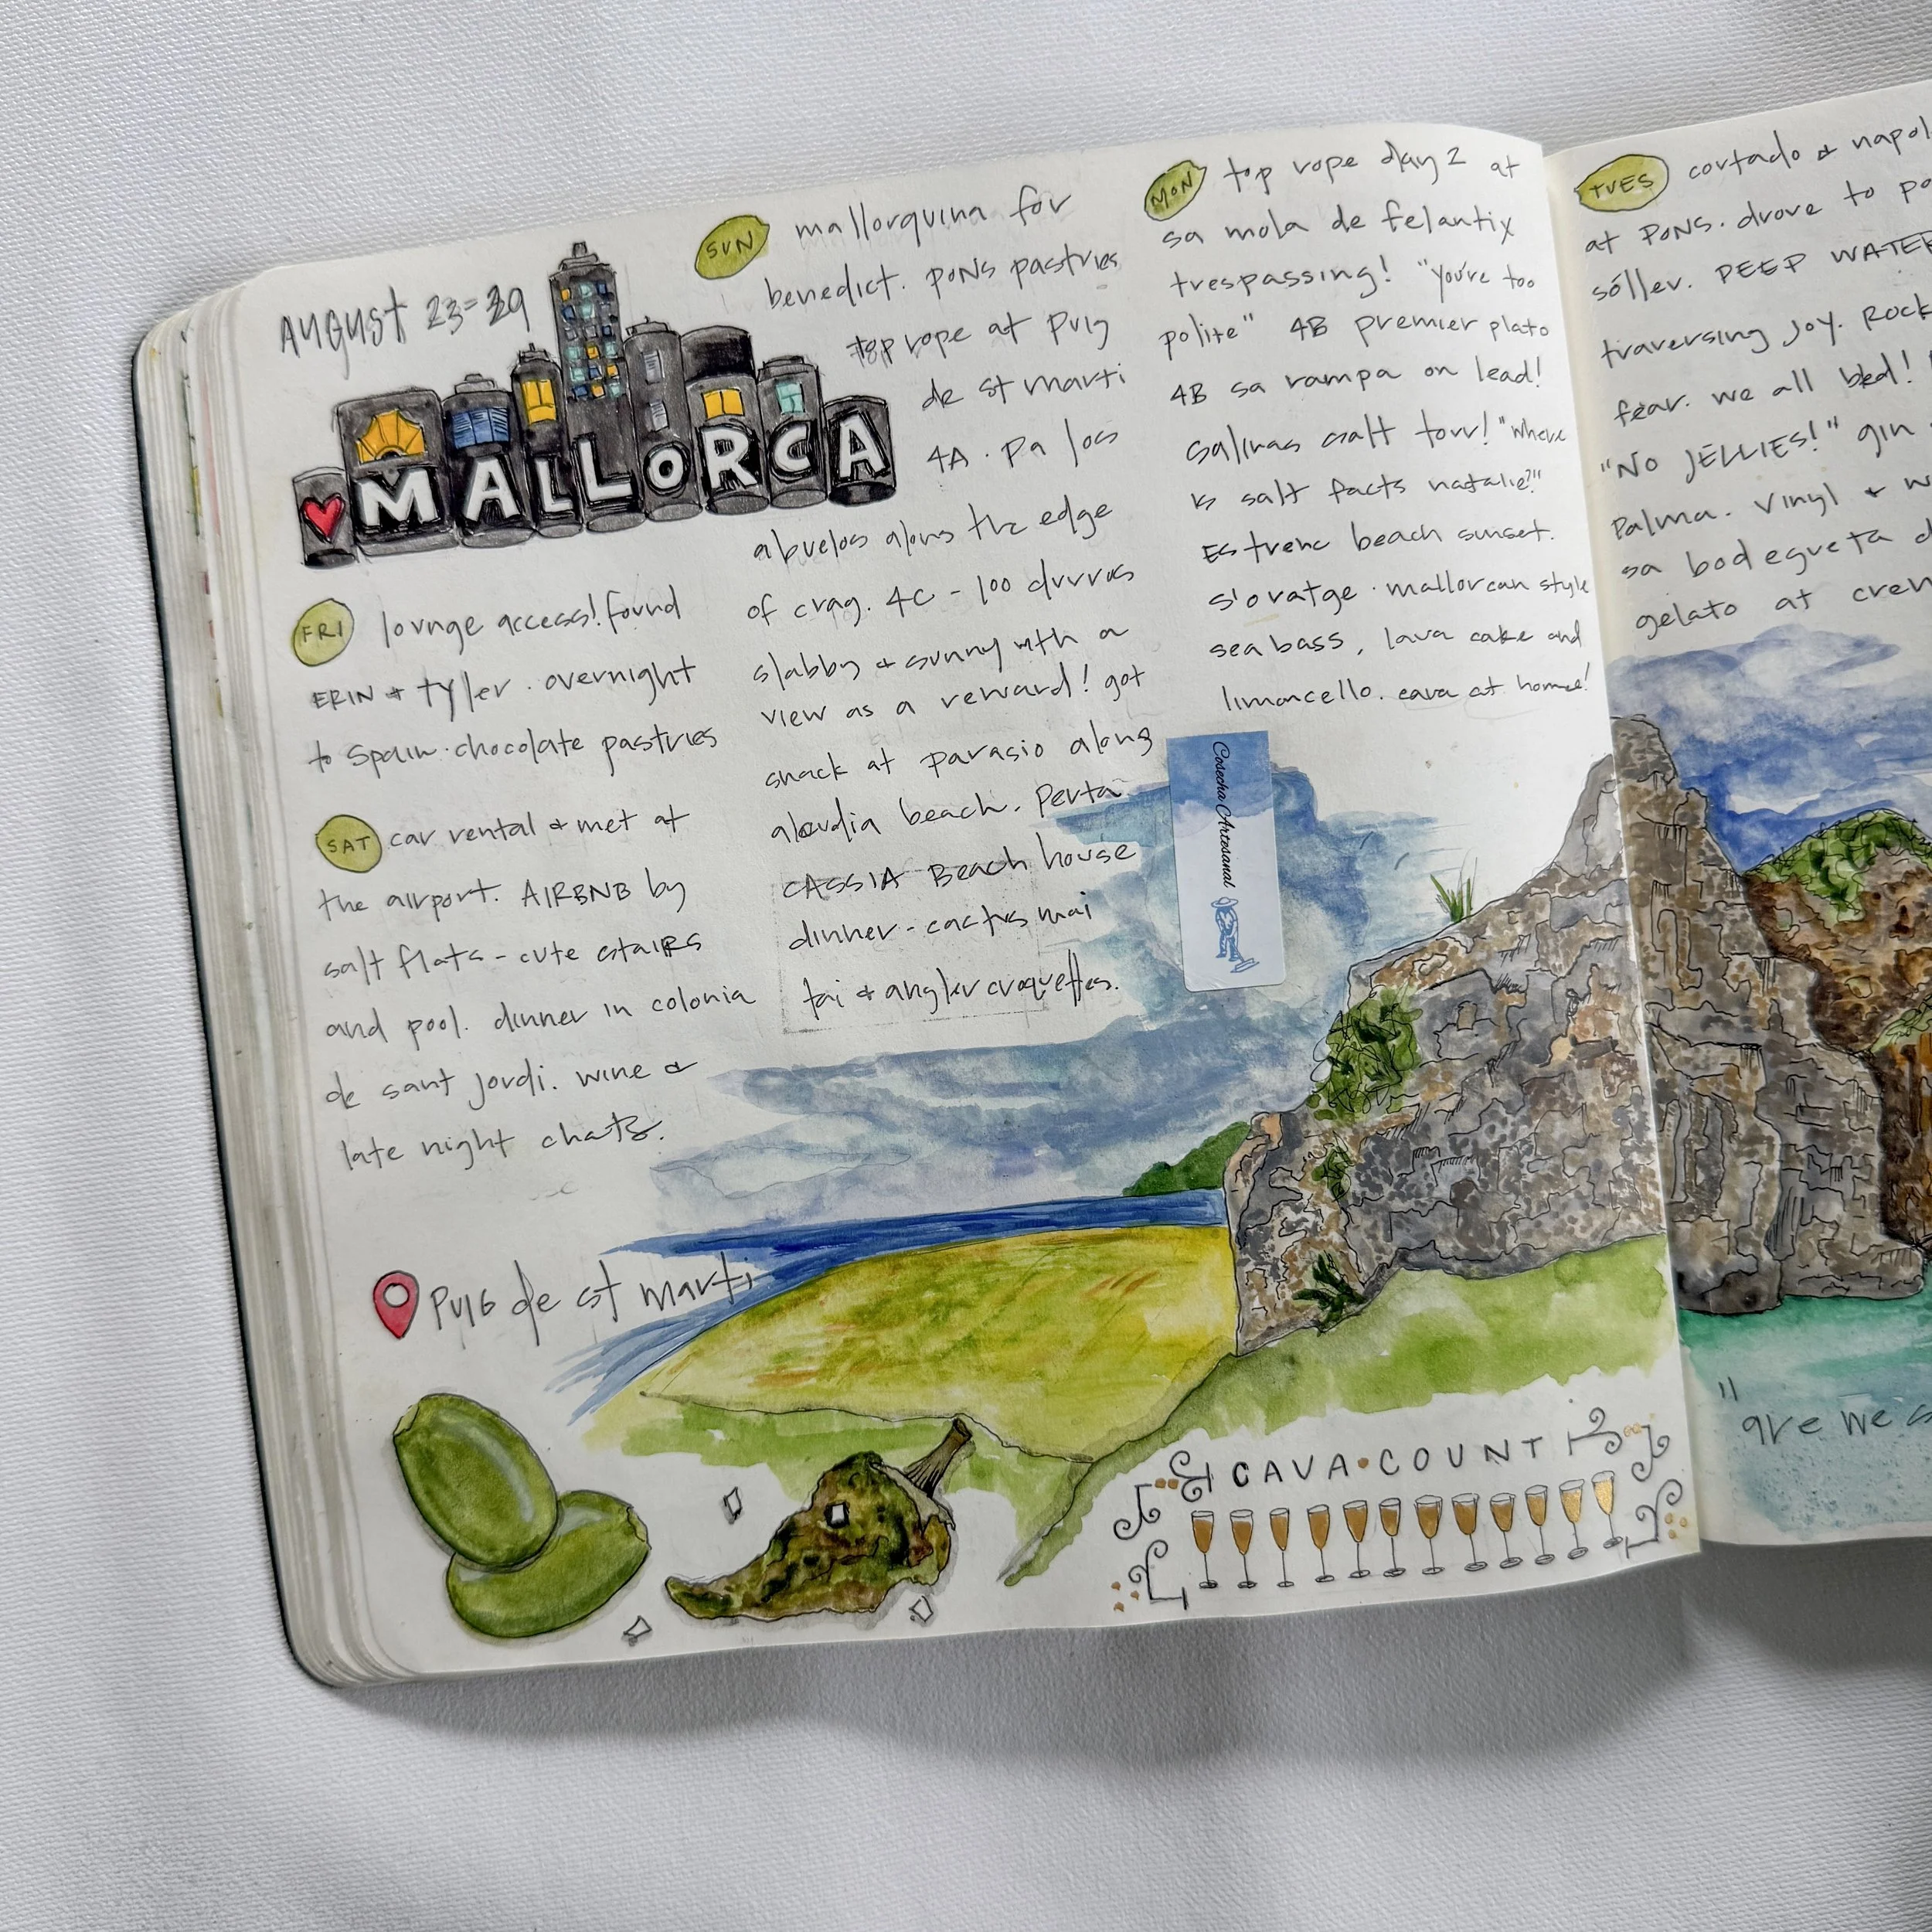 AUGUST 23-29
MALLORCA
FRI lounge access! found
ERIN & tyler. overnight
to Spain. chocolate pastries
SAT car rental & met at
the airport. AIRBNB by
salt flats - cute stairs
and pool. dinner in colonia
de sant jordi. wine &
late night chats.
Puig de st marti
SUN mallorquina for
benedict. PONS pastries
top rope at Puig
de st marti
4A. Pa los
abuelos along the edge
of crag. 4C - 100 durros
slabby & sunny with a
view as a reward! got
snack at parasio along
alcudia beach.
CASSIA Beach house
dinner - cactus mai
tai & angler croquettes.
MON top rope day 2 at
sa mola de felantix
trespassing! "you're too
polite" 4B premier plato
4B sa rampa on lead!
Salinas salt tour! "Where
is salt facts natalie?"
Es trenc beach sunset.
s'oratge. mallorcan style
sea bass, lava cake and
limoncello. cava at home!
Cosecha Artesanal
CAVA•COUNT
TUES cortado & napol
at PONS. drove to po
sóller. PEEP WATER
traversing joy. Rock
fear. we all bled!
"NO JELLIES!" gin
Palma. Vinyl & w
sa bodegueta d
gelato at crem
"are we s